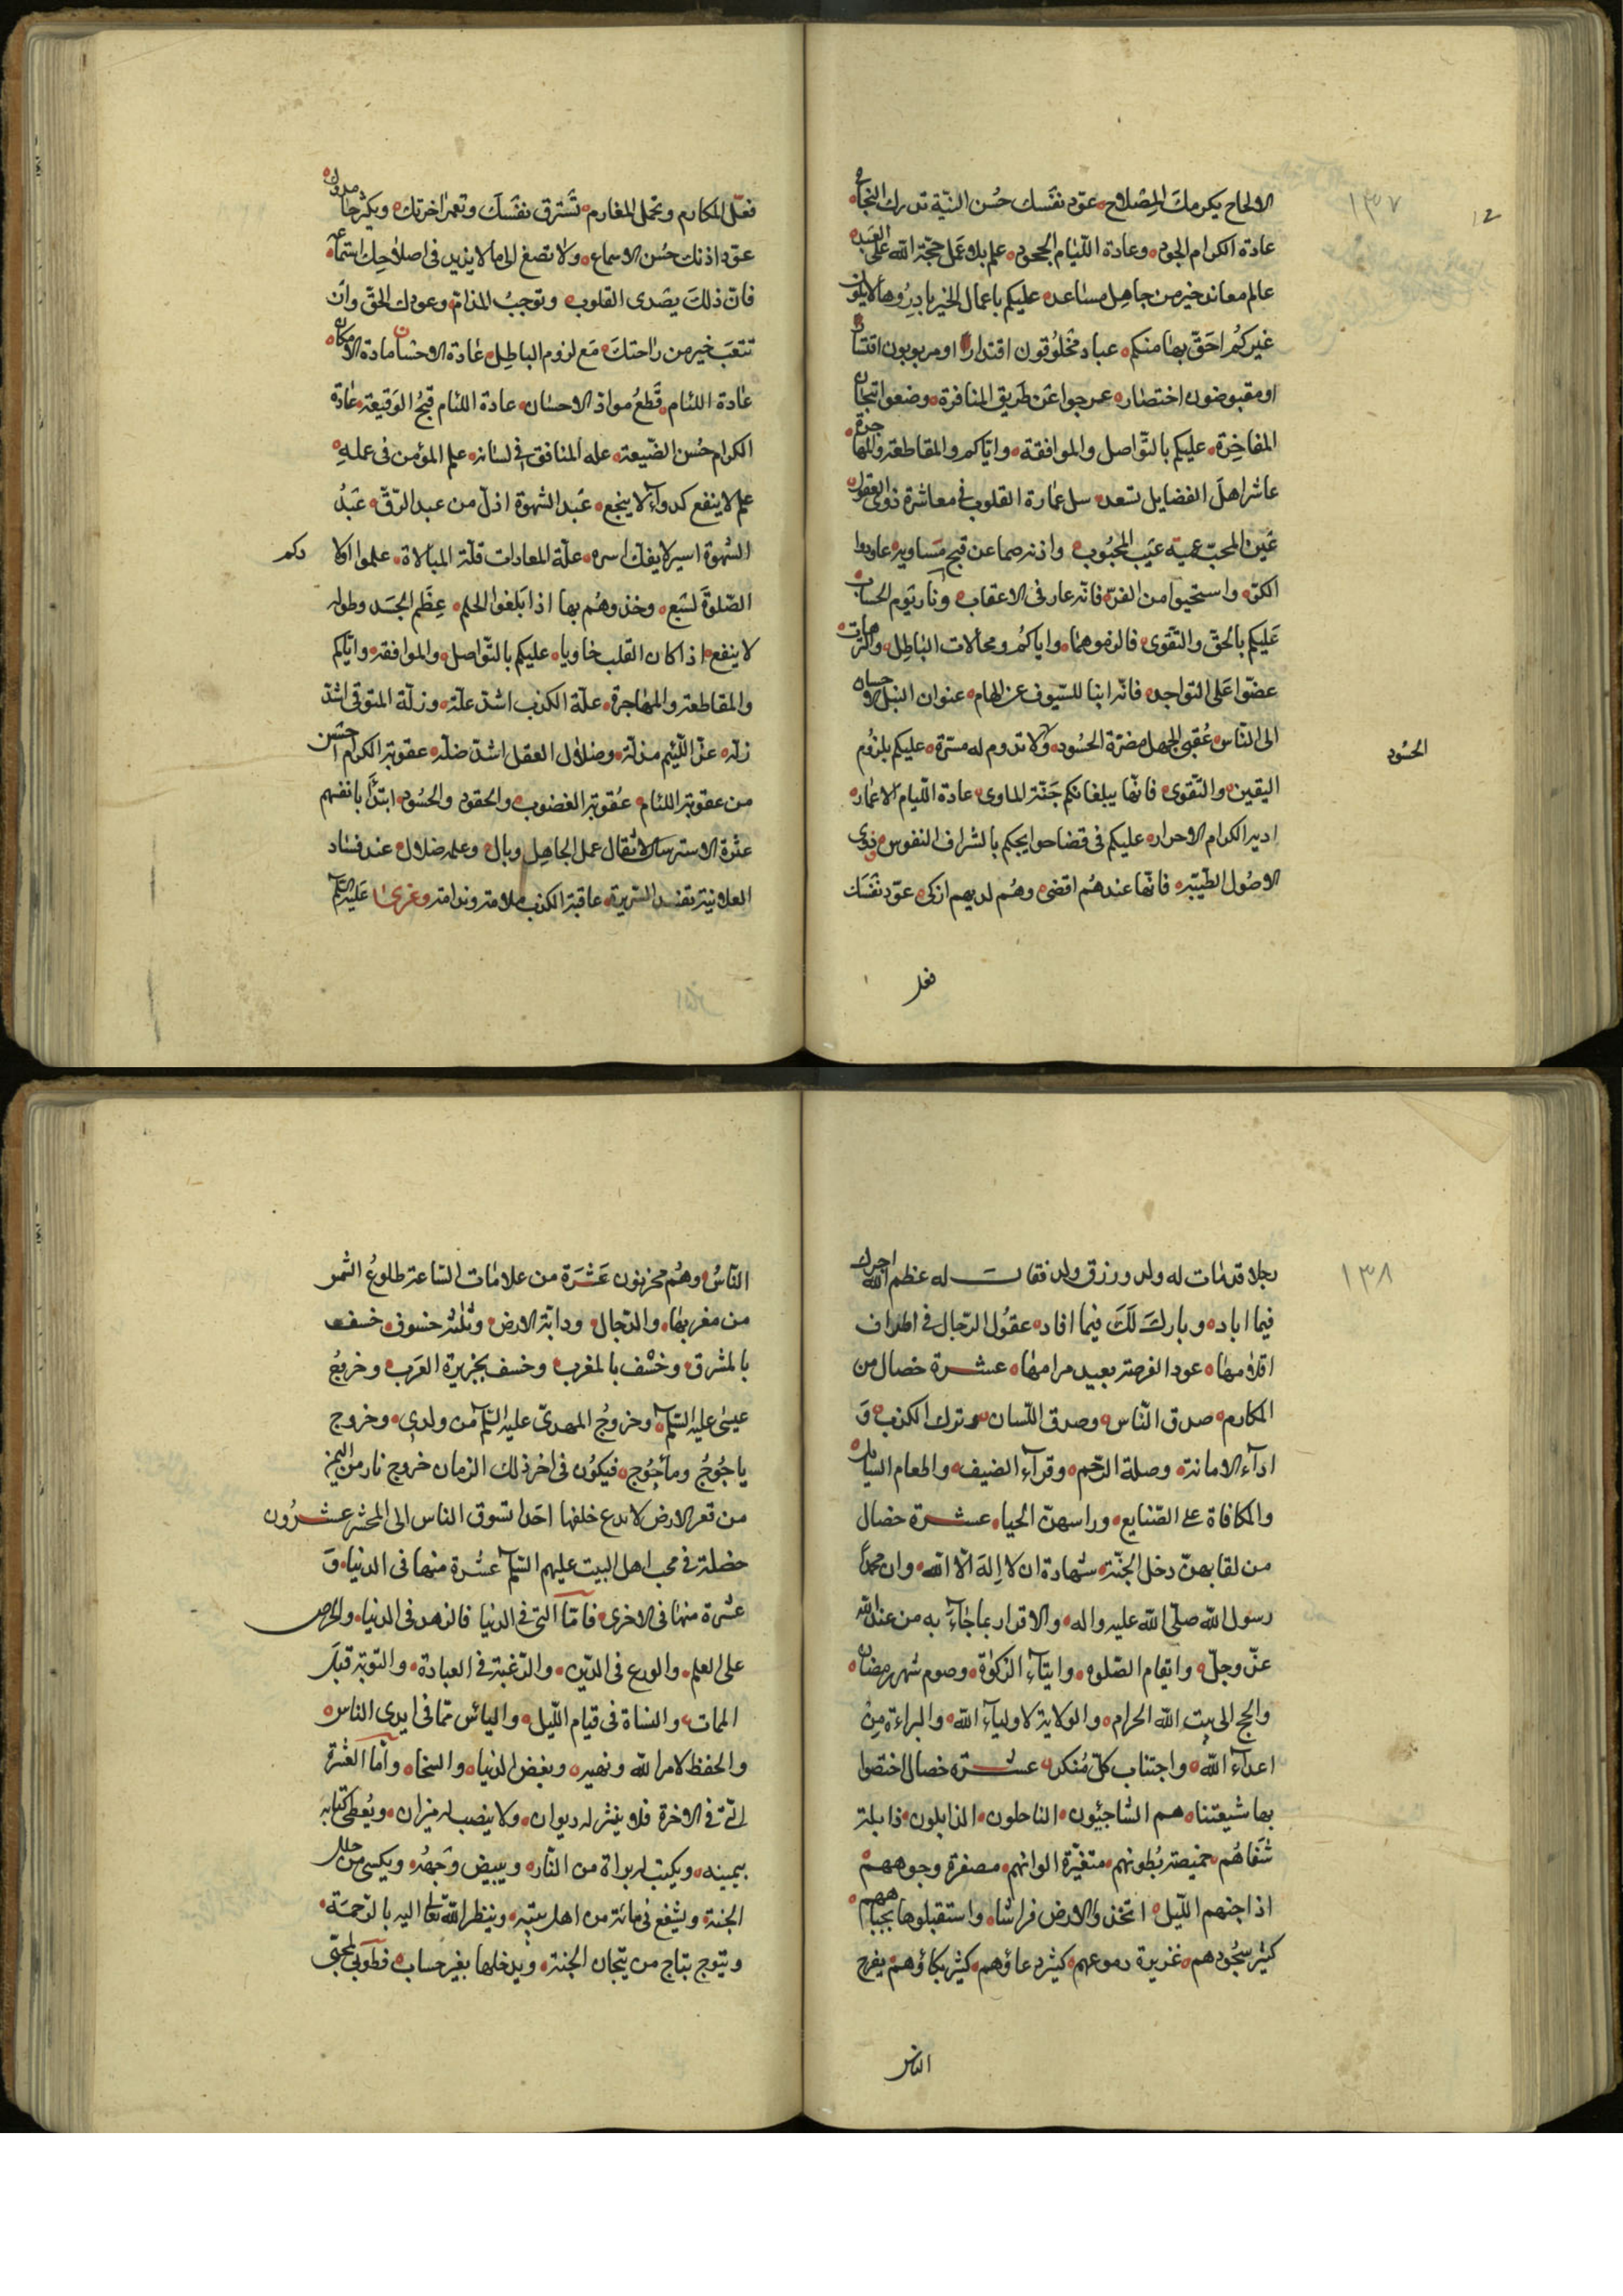 ١٣٧
الالحاح يكرمك المصلاح عوّد نفسك حُسن النيّة تدرك النجاح
عادة الكرام الجود وعادة اللئام الجحود علم بلا عمل حجّة الله على العبد
عالم معاند خير من جاهل مساعد عليكم باعمال الخير بادروها لا يكون
غيركم احقّ بها منكم عباد مخلوقون اقتدارا ومربوبون اقتسارا
او مقبوضون اختصارا عرجوا عن طريق المنافرة وضعوا تيجان
المفاخرة عليكم بالتواصل والموافقة واياكم والمقاطعة والمهاجرة
عاشر اهل الفضايل تسعد سل عمارة القلوب في معاشرة ذوى العقول
عين المحبّ عمية عيب المحبوب واذنه صما عن قبح مساويه عاودوا
الكرّ واستحيوا من الفرّ فانه عار فى الاعقاب ونار يوم الحساب
عليكم بالحقّ والتقوى فالزموهما واياكم ومحالات الباطل والترهات
عضّوا على النواجد فانه انبا للسيوف عن الهام عنوان النبل الاحسان
الى الناس عُقبى الجهل مضرّة الحسود ولا تدوم له مسرّة عليكم بلزوم
الحسود
اليقين والتقوى فانهما يبلغانكم جنّة الماوى عادة اللئام الاغمار
ادير الكرام الاحرار عليكم فى قضا حوايجكم بالشراف النفوس ذوى
الاصول الطيّبة فانها عندهم اقضى وهم لديهم ازكى عوّد نفسك
فعل
فعل المكارم وتحمل المغارم تشرق نفسك وتعمر اخرتك ويكثر حامدوك
عوّد اذنك حُسن الاسماع ولا تصغ الى ما لا يزيد فى اصلاحك استماعه
فان ذلك يصدى القلوب وتوجب المذام وعودك الحق وان
تتعب خير من راحتك مع لزوم الباطل عادة الاحسان مادة الامكان
عادة اللئام قطع مواد الاحسان عادة اللئام قبح الوقيعة عادة
الكرام حُسن الضّيعة علم المنافق فى لسانه علم المؤمن فى عمله
علم لا ينفع كدواء لا ينجع عبد الشهوة اذلّ من عبد الرّق عبد
الشهوة اسير لا يفك اسره علّة المعادات قلّة المبالاة علموا اولا
دكم
الصّلوة لسبع وخذوهم بها اذا بلغوا الحلم عظم الجسد وطوله
لا ينفع اذا كان القلب خاويا عليكم بالتواصل والموافقة واياكم
والمقاطعة والمهاجرة علّة الكذب اشدّ علّة وزلّة المتوقى اشدّ
زلّة عزّ اللئيم مذلّة وضلال العقل اشدّ ضلّة عقوبة الكرام احسن
من عقوبة اللئام عقوبة الغضوب والحقود والحسود ابتدا بانفسهم
عثرة الاسترسال لا تقال عمل الجاهل وبال وعلمه ضلال عند فساد
العلانية تفسد السريرة عاقبة الكذب ملامة وندامة وعزى عليه السلم
١٣٨
رجلا قد مات له ولد ورزق ولد فقال له عظم الله اجرك
فيما اباد وبارك لك فيما افاد عقول الرجال فى اطراف
اقلامها عود الفرصة بعيد مرامها عشرة خصال من
المكارم صدق الناس وصدق اللسان وترك الكذب و
اداء الامانة وصلة الرّحم وقراء الضيف واطعام السايل
والمكافاة على الصنايع وراسهنّ الحيا عشرة خصال
من لقا بهنّ دخل الجنّة شهادة ان لا اله الا الله وان محمداً
رسول الله صلّى الله عليه واله والاقرار بما جاء به من عند الله
عزّ وجلّ واقام الصلوه وايتاء الزكوة وصوم شهر رمضان
والحج الى بيت الله الحرام والولاية لاولياء الله والبراءة من
اعداء الله واجتناب كل منكر عشرة خصال اختصوا
بها شيعتنا هم الشاحبون الناحلون الذابلون ذابلة
شفاهم خميصة بطونهم متغيّرة الوانهم مصفرة وجوههم
اذا جنهم الليل اتخذوا الارض فراشا واستقبلوها بجباههم
كثير سجودهم غزيرة دموعهم كثير دعاؤهم كثير بكاؤهم يفرح
الناس
الناس وهم محزنون عشرة من علامات الساعة طلوع الشمس
من مغربها والدجال ودابّة الارض وثلثة خسوف خسف
بالمشرق وخسف بالمغرب وخسف بجزيرة العرب وخروج
عيسى عليه السلم وخروج المهدىّ عليه السلم من ولدى وخروج
ياجوج وماجوج فيكون فى اخر ذلك الزمان خروج نار من اليمن
من قعر الارض لا تدع خلفها احدا تسوق الناس الى المحشر عشرون
خصلة فى محب اهل البيت عليهم السلم عشرة منها فى الدنيا و
عشرة منها فى الاخرى فامّا التى فى الدنيا فالزهد فى الدنيا والحرص
على العلم والورع فى الدّين والرّغبة فى العبادة والتوبة قبل
الممات والنشاة فى قيام الليل والياس ممّا فى ايدى الناس
والحفظ لامر الله ونهيه وبغض الدنيا والسخا وامّا العشرة
التى فى الاخرة فلا ينشر له ديوان ولا ينصب له ميزان ويعطى كتابه
بيمينه ويكتب له براة من النار ويبيض وجهه ويكسى من حلل
الجنة ويشفع فى مائة من اهل بيته وينظر الله تعالى اليه بالرّحمة
ويتوج بتاج من تيجان الجنة ويدخلها بغير حساب فطوبى لمحبّى